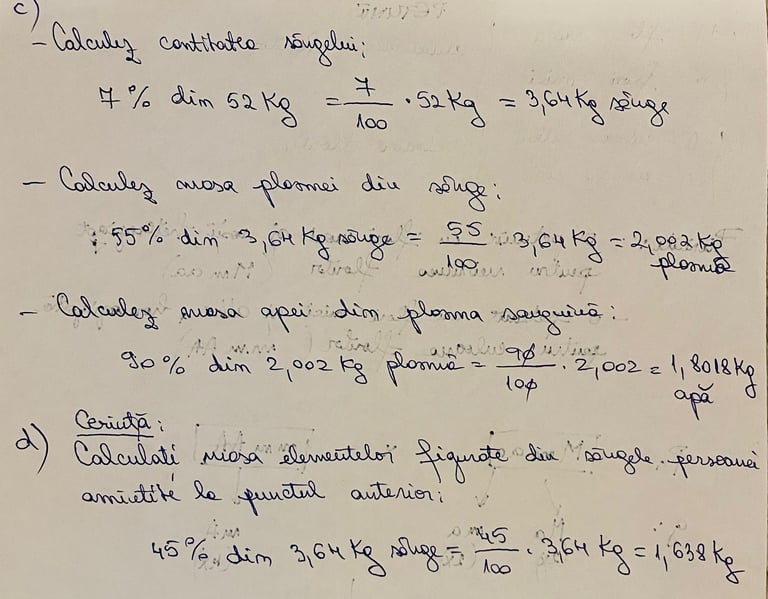 c)
- Calculez cantitatea sângelui:
7% din 52 Kg = 7/100 · 52 Kg = 3,64 Kg sânge
- Calculez masa plasmei din sânge:
55% din 3,64 Kg sânge = 55/100 · 3,64 Kg = 2,002 Kg plasmă
- Calculez masa apei din plasma sanguină:
90% din 2,002 Kg plasmă = 90/100 · 2,002 = 1,8018 Kg apă
d) Cerință:
Calculați masa elementelor figurate din sângele persoanei
amintite la punctul anterior:
45% din 3,64 Kg sânge = 45/100 · 3,64 Kg = 1,638 Kg